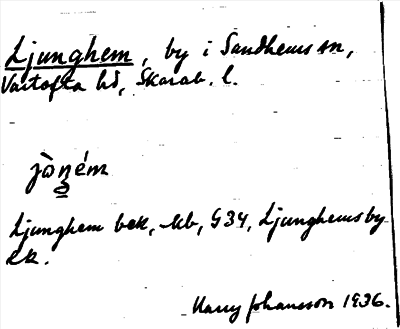 Ljunghem, by i Sandhems sn,
Vartofta hd, Skarab. l.
Ljunghem bek, kb, G34, Ljunghems by
ek.
Harry Johansson 1936.